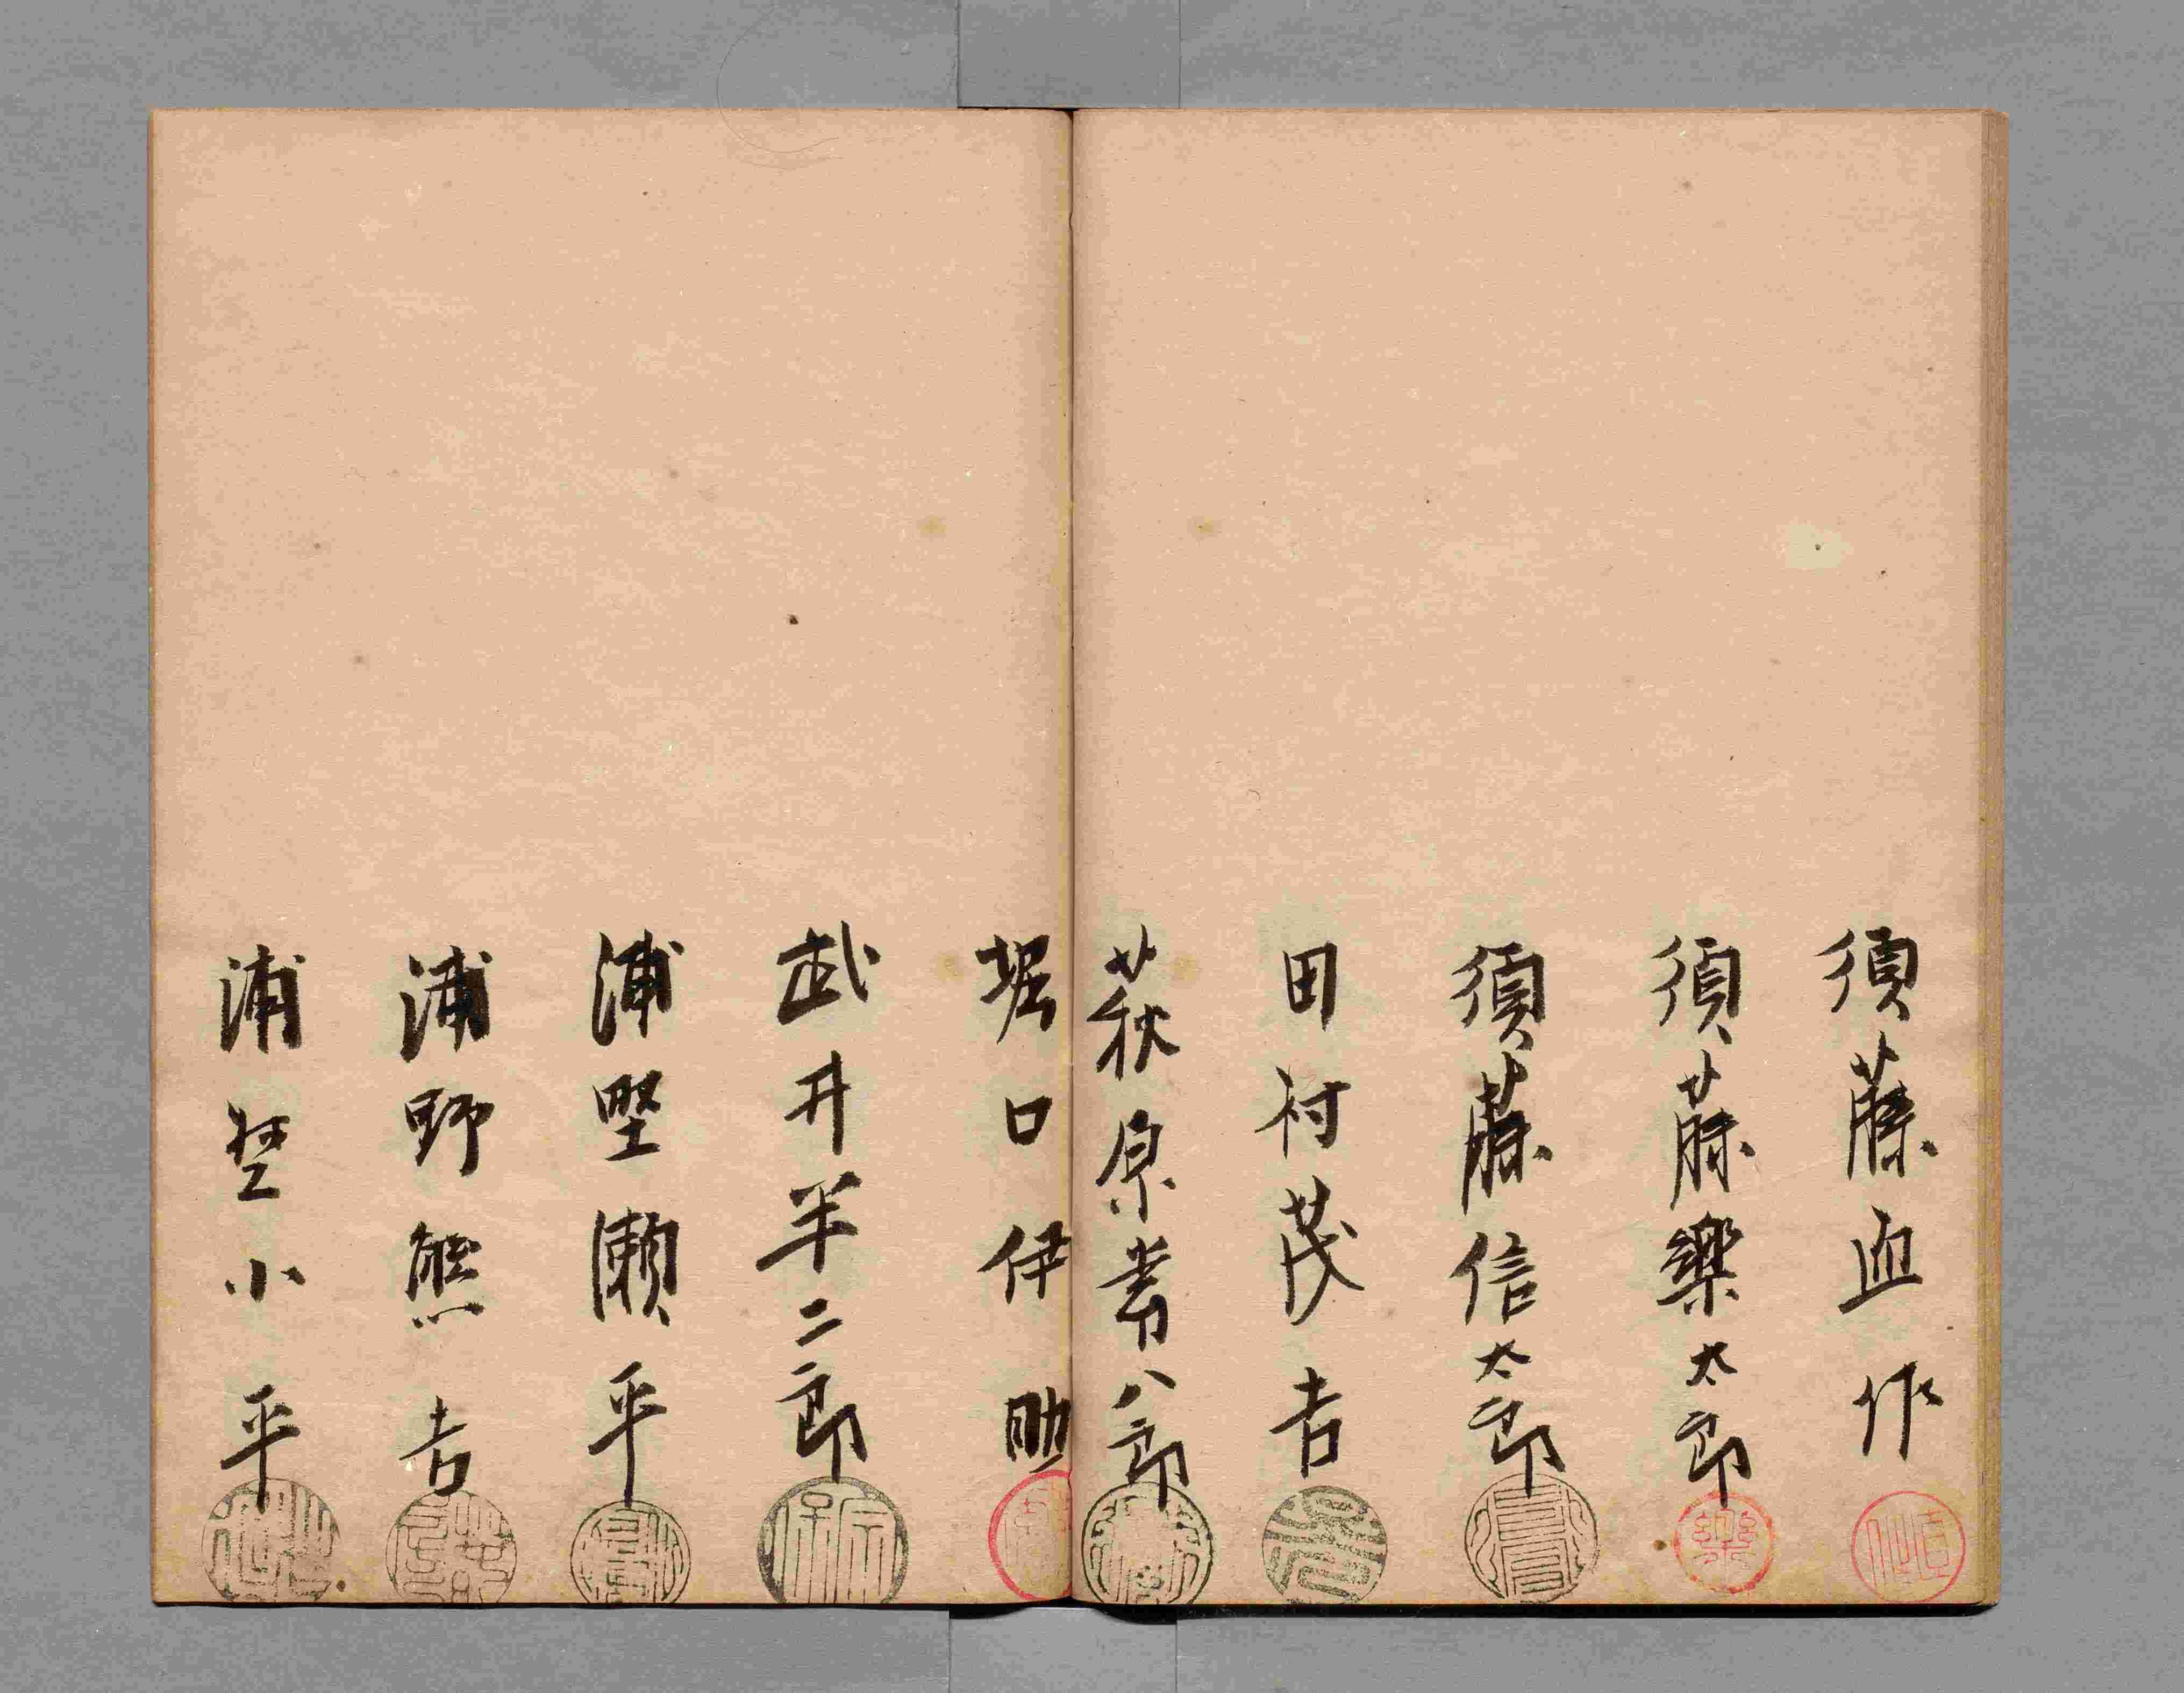 須藤直作
須藤樂太郎
須藤信太郎
田村茂吉
萩原書八郎
堀口伊助
武井半二郎
浦埜瀬平
浦野熊吉
浦埜小平